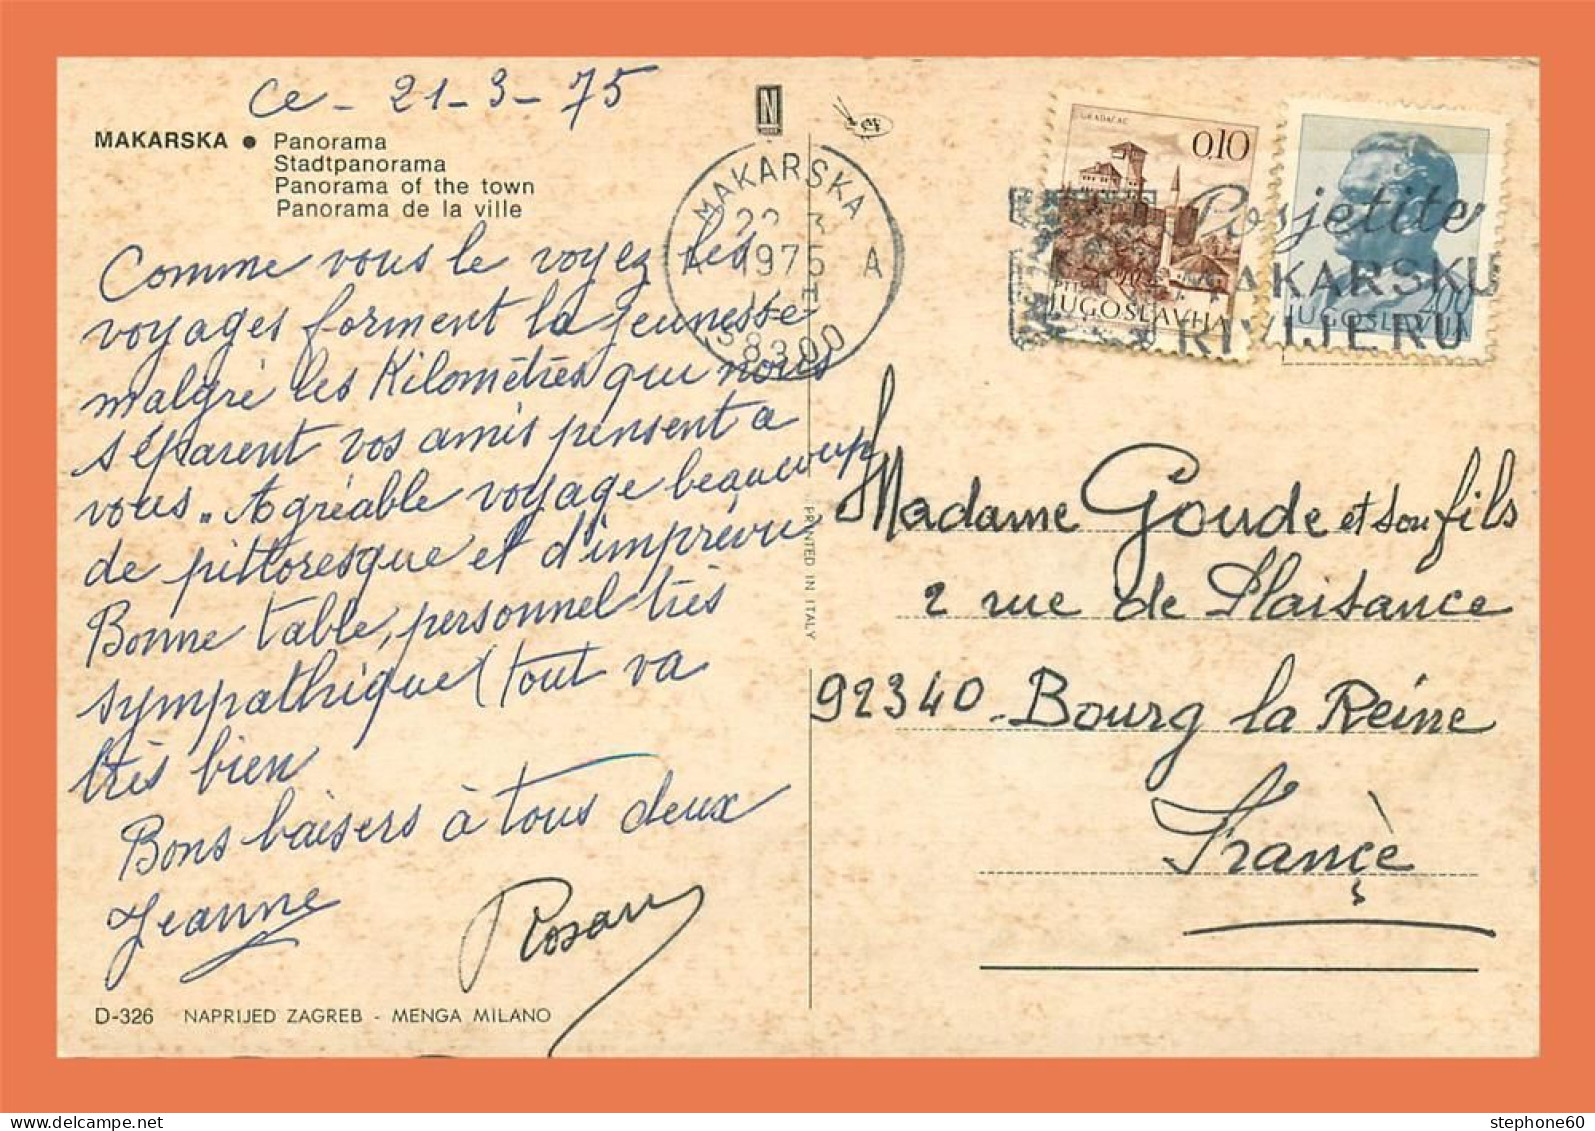 Ce - 21-3-75
MAKARSKA ● Panorama
Stadtpanorama
Panorama of the town
Panorama de la ville
Comme vous le voyez les
voyages forment la jeunesse
malgré les Kilomètres qui nous
séparent vos amis pensent a
vous. Agréable voyage beaucoup
de pittoresque et d'imprévu
Bonne table, personnel très
sympathique (tout va
très bien
Bons baisers à tous deux
Jeanne
D-326 NAPRIJED ZAGREB - MENGA MILANO
N
MAKARSKA
1975
A A
58300
PRINTED IN ITALY
GRADAČAC
0,10
JUGOSLAVIJA
JUGOSLAVIJA
Posjetite
MAKARSKU
RIVIJERU
Madame Goude et son fils
2 rue de Plaisance
92340 - Bourg la Reine
France
stephone60